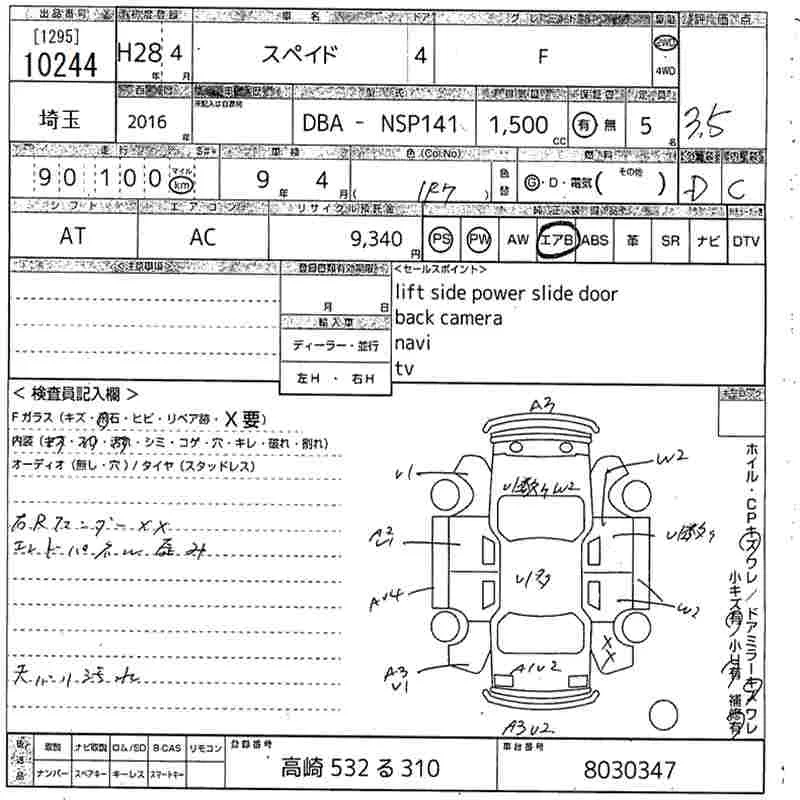 出品番号 初度登録 車名 ドア グレード 駆動 評価点
[1295]
10244 H28年 4月 スペイド 4 F 2WD 4WD
埼玉 2016年 未記入は自家用 型式 DBA - NSP141 排気量 1,500cc 保証書 有 無 定員 5名 3.5
走行 車検 色(Col No) 燃料 外装 内装
90100 マイル km 9年 4月 ( 1F7 ) 色替 G・D・電気( その他 ) D C
シフト エアコン リサイクル預託金
AT AC 9,340円 PS PW AW エアB ABS 革 SR ナビ DTV
<注意事項> 登録書類有効期限 <セールスポイント>
月 日
輸入車
ディーラー・並行
左H ・ 右H
lift side power slide door
back camera
navi
tv
< 検査員記入欄 >
Fガラス(キズ・飛石・ヒビ・リペア跡・X要)
内装(キズ・スレ・汚れ・シミ・コゲ・穴・キレ・破れ・割れ)
オーディオ(無し・穴)/タイヤ(スタッドレス)
右Rフェンダー XX
エンドパネル 歪み
天バリ汚れ
A3
U1
W2
A2
U1
W2
AU4
W2
U1
A3
U1
XX
A1U2
A3U2
ホイル・CPキズワレ/ドアミラーキズワレ
小キズ有/小H有 補修有
返送品 取説 ナビ取説 ロム/SD B-CAS リモコン
ナンバー スペアキー キーレス スマートキー
登録番号 高崎 532 る 310
車台番号 8030347